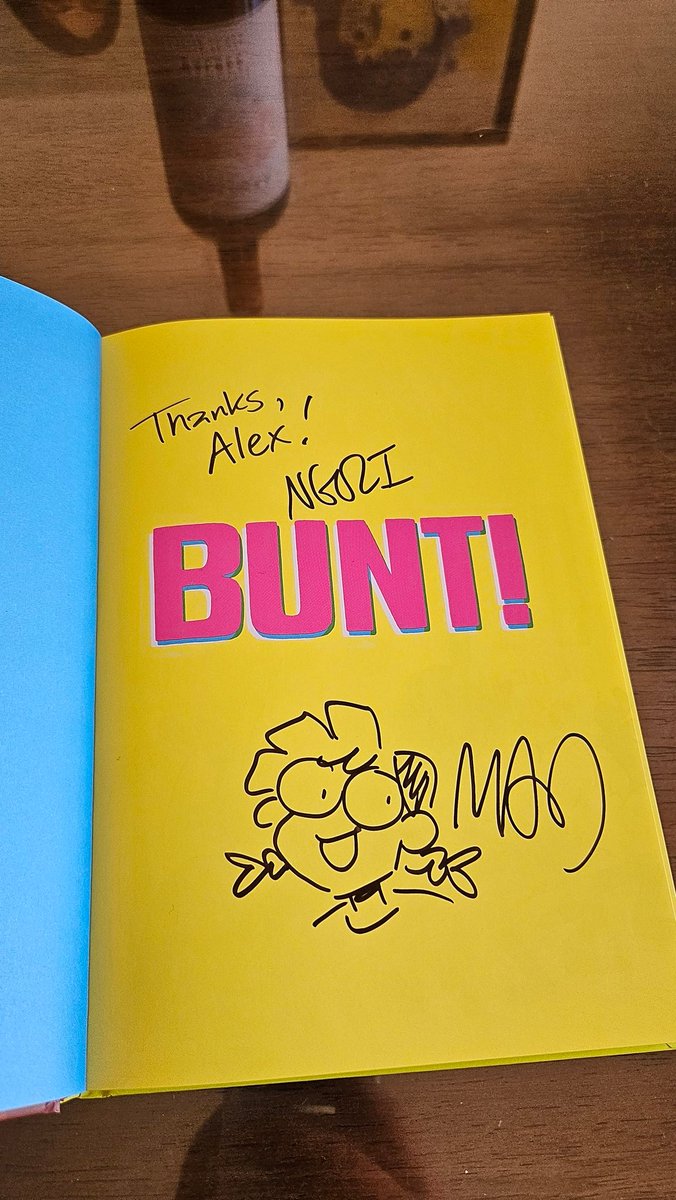 Thanks,
Alex!
NGOZI
BUNT!
MAD